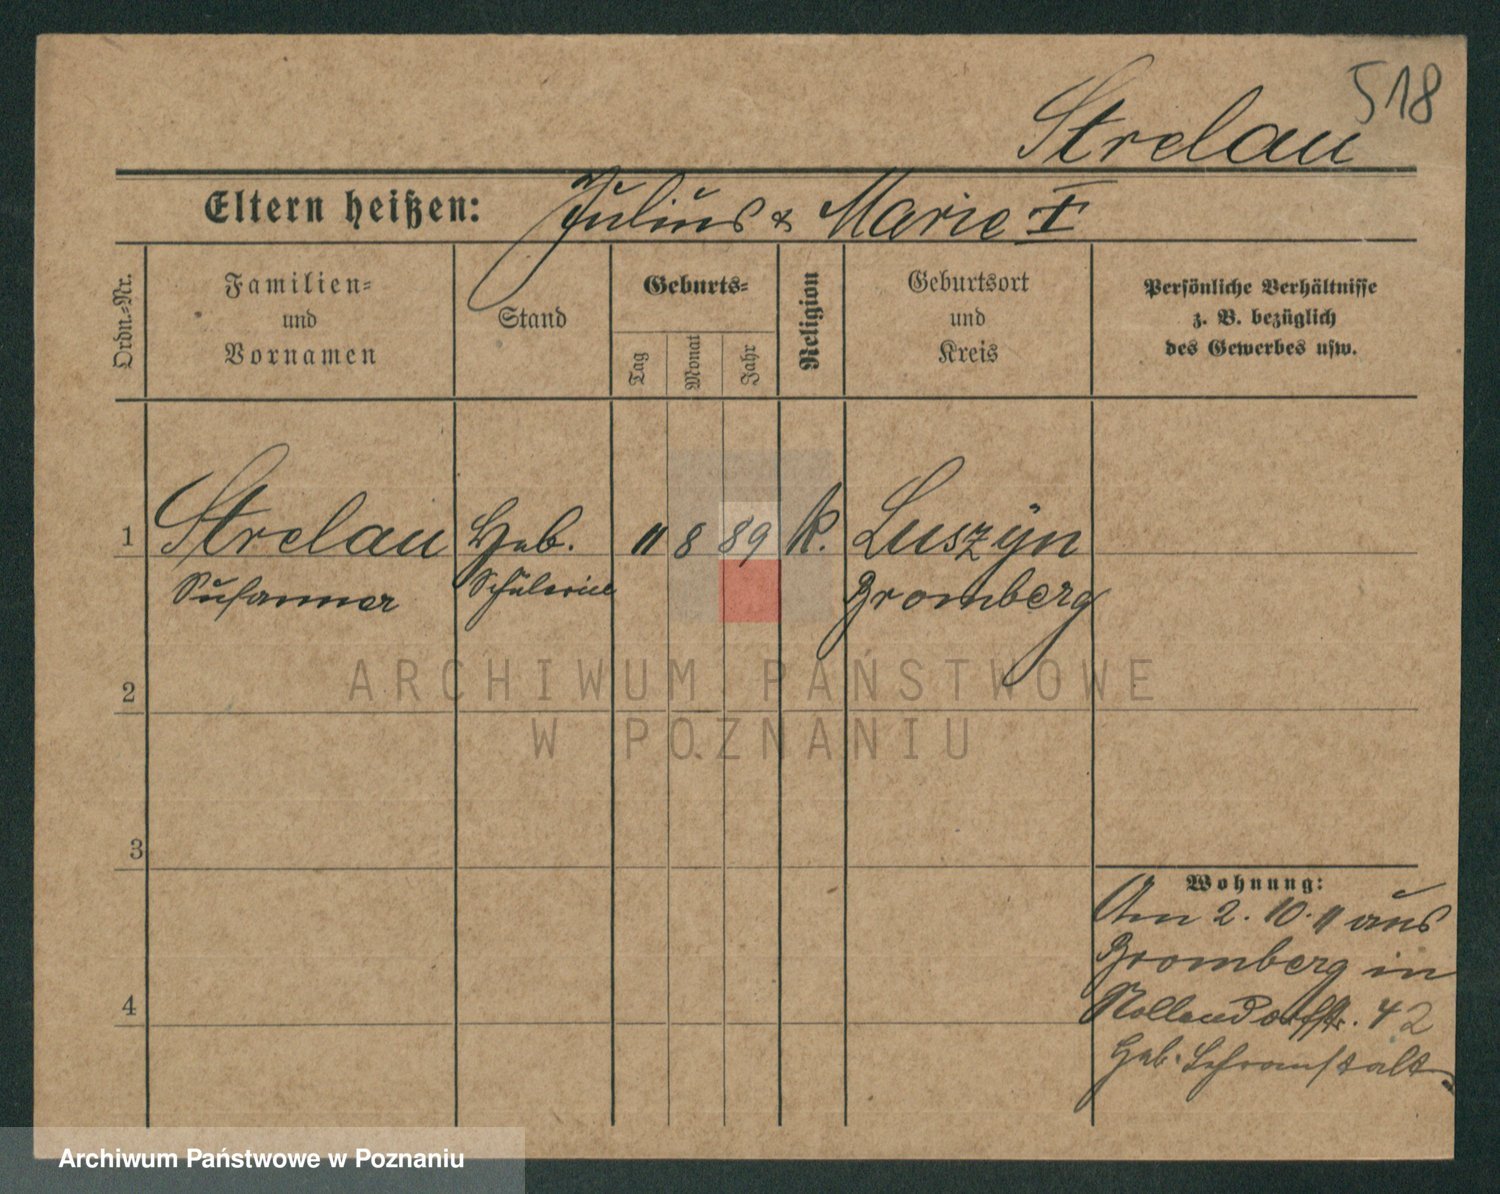 518
Strelau
Eltern heißen: Julius & Marie I
Ordn.-Nr.
Familien-
und
Vornamen
Stand
Geburts-
Tag
Monat
Jahr
Religion
Geburtsort
und
Kreis
Persönliche Verhältnisse
z. B. bezüglich
des Gewerbes usw.
1 Strelau Heb. 11 8 89 k. Luszyn
Schülerin Bromberg
2
3
4
Wohnung:
Am 2. 10. 11 aus
Bromberg in
Nollendorfstr. 42
Heb. Lehranstalt
ARCHIWUM PAŃSTWOWE
W POZNANIU
Archiwum Państwowe w Poznaniu